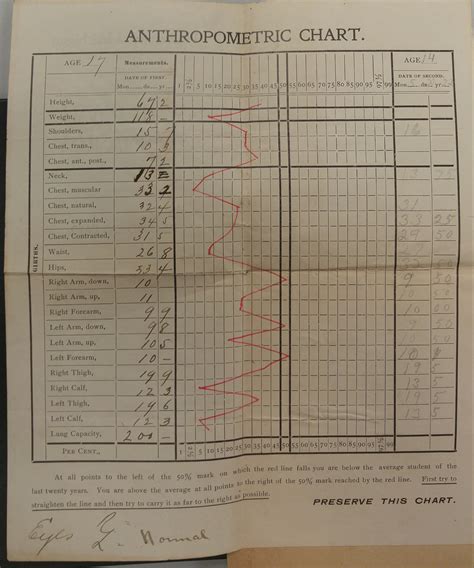 ANTHROPOMETRIC CHART.
AGE 17 Measurements. AGE 14
DATE OF FIRST. 1 2½ 5 10 15 20 25 30 35 40 45 50 55 60 65 70 75 80 85 90 95 97½ 99 DATE OF SECOND.
Mon. da. yr. Mon. da. yr.
Height, 67 2
Weight, 118 -
Shoulders, 15 7
Chest, trans., 10
Chest, ant., post., 7 2
Neck, 13
Chest, muscular 33 2
Chest, natural, 32 4 31
Chest, expanded, 34 5 33 25
Chest, Contracted, 31 5 29 50
Waist, 26 8 50
Hips, 33 4 50
Right Arm, down, 10 9 50
Right Arm, up, 11 10 50
Right Forearm, 9 9 10 00
Left Arm, down, 9 8 9 50
Left Arm, up, 10 5 10 50
Left Forearm, 10 - 10
Right Thigh, 19 9 19 5
Right Calf, 12 3 13 5
Left Thigh, 19 6 19 5
Left Calf, 12 3 13 5
Lung Capacity, 200 -
GIRTHS.
PER CENT., 1 2½ 5 10 15 20 25 30 35 40 45 50 55 60 65 70 75 80 85 90 95 97½ 99
At all points to the left of the 50% mark on which the red line falls you are below the average student of the
last twenty years. You are above the average at all points to the right of the 50% mark reached by the red line. First try to
straighten the line and then try to carry it as far to the right as possible.
PRESERVE THIS CHART.
Eyes Normal